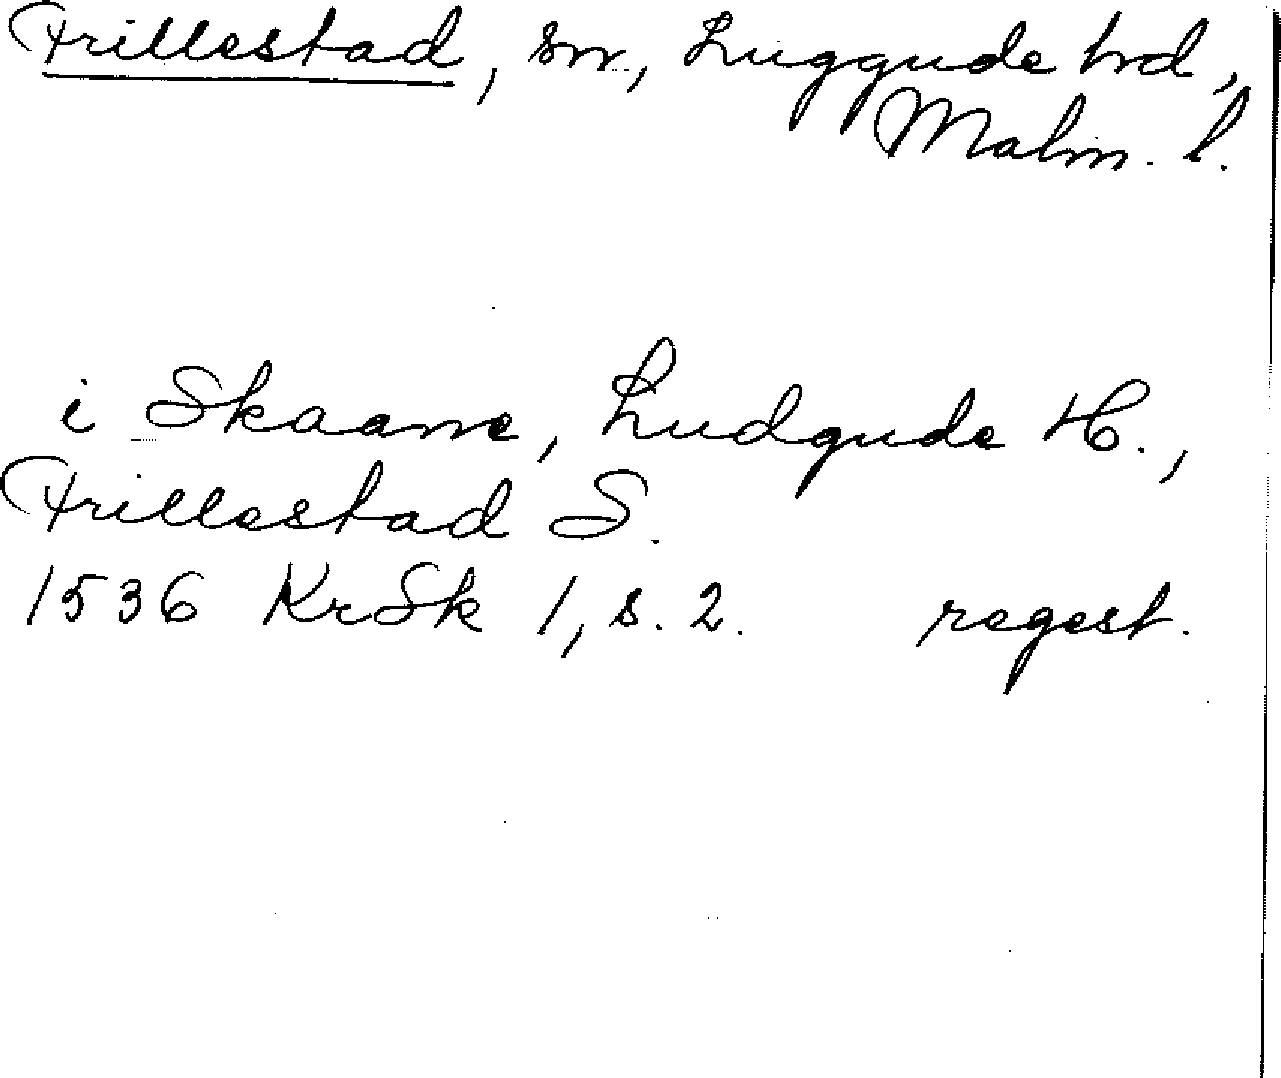 Frillestad, sn, Luggude hd,
Malm. l.
i Skaane, Ludgude H.,
Frillestad S.
1536 KrSk 1, s. 2. regest.